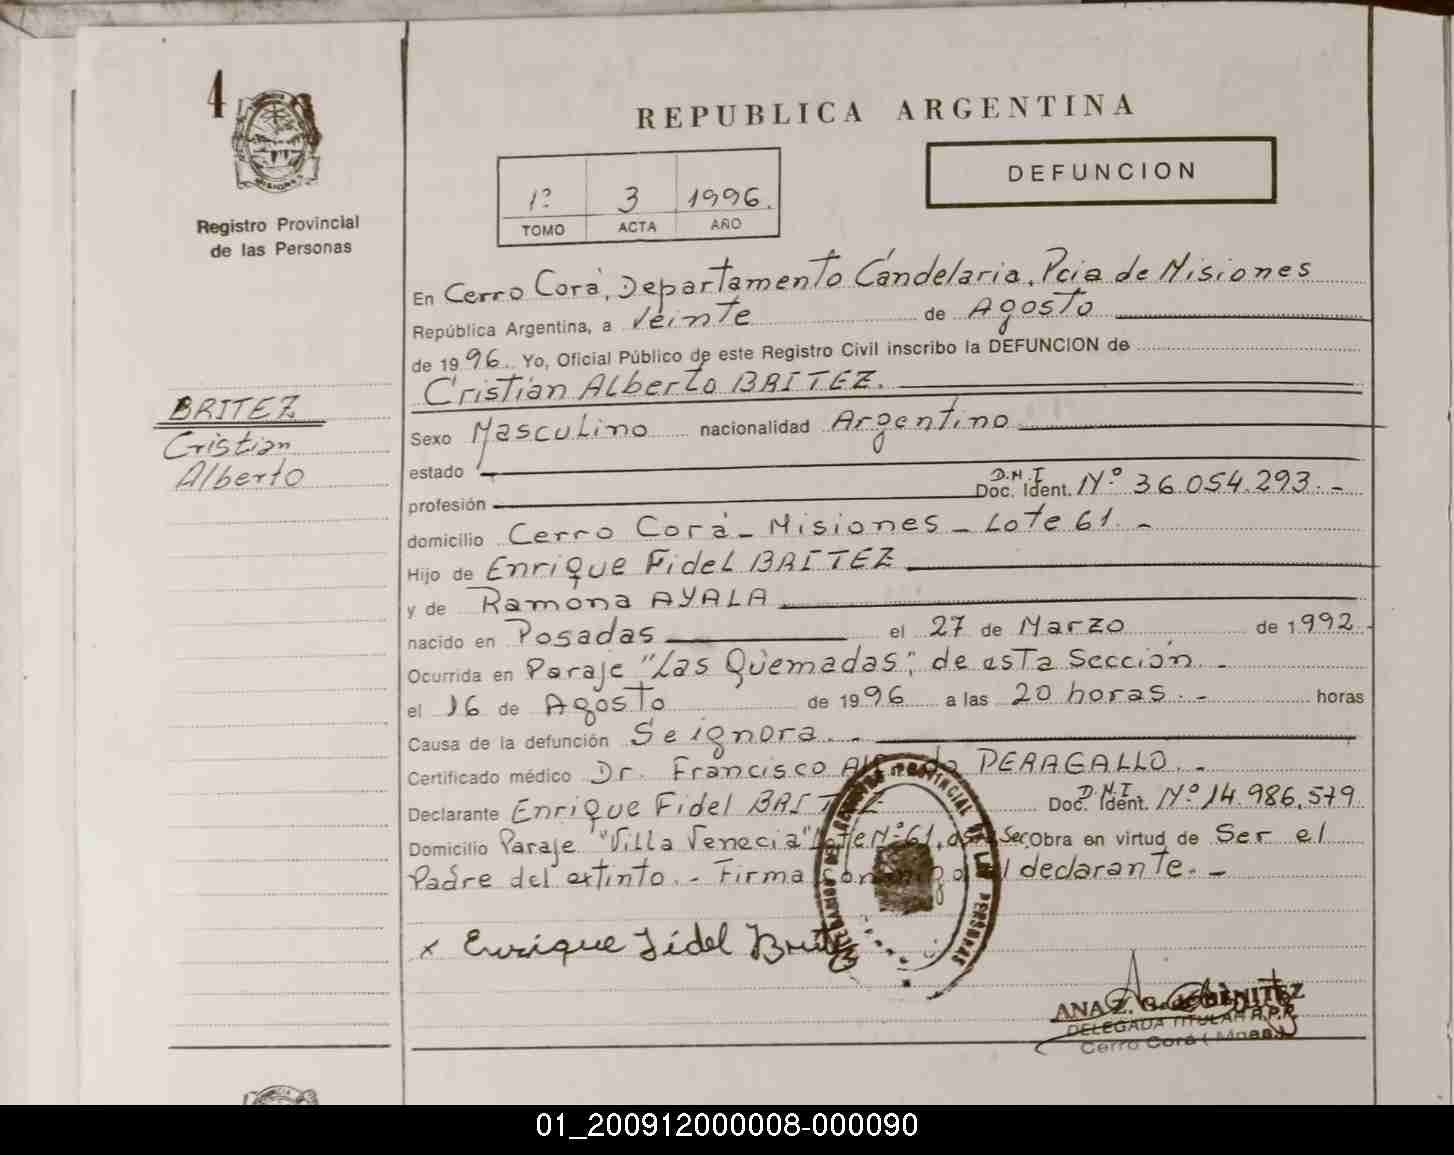 4
Registro Provincial
de las Personas
REPUBLICA ARGENTINA
DEFUNCION
1º 3 1996.
TOMO ACTA AÑO
En Cerro Corá, Departamento Candelaria, Pcia de Misiones
República Argentina, a Veinte de Agosto
de 1996. Yo, Oficial Público de este Registro Civil inscribo la DEFUNCION de
Cristian Alberto BRITEZ.
BRITEZ
Cristian
Alberto
Sexo Masculino nacionalidad Argentino
estado
profesión D.N.I Doc. Ident. Nº 36.054.293.-
domicilio Cerro Corá - Misiones - Lote 61.-
Hijo de Enrique Fidel BRITEZ
y de Ramona AYALA
nacido en Posadas el 27 de Marzo de 1992.
Ocurrida en Paraje "Las Quemadas", de esta Sección.-
el 16 de Agosto de 1996 a las 20 horas.- horas
Causa de la defunción Se ignora.-
Certificado médico Dr. Francisco PERAGALLO.-
Declarante Enrique Fidel BRITEZ D.N.I. Doc. Ident. Nº 14.986.579
Domicilio Paraje "Villa Venecia" Lote Nº 61, Sec. Obra en virtud de Ser el
Padre del extinto.- Firma declarante.-
x Enrique Fidel Britez
REGISTRO PROVINCIAL DE LAS PERSONAS
ANA Z. BENITEZ
DELEGADA TITULAR R.P.P.
Cerro Corá (Mnes.)
01_200912000008-000090